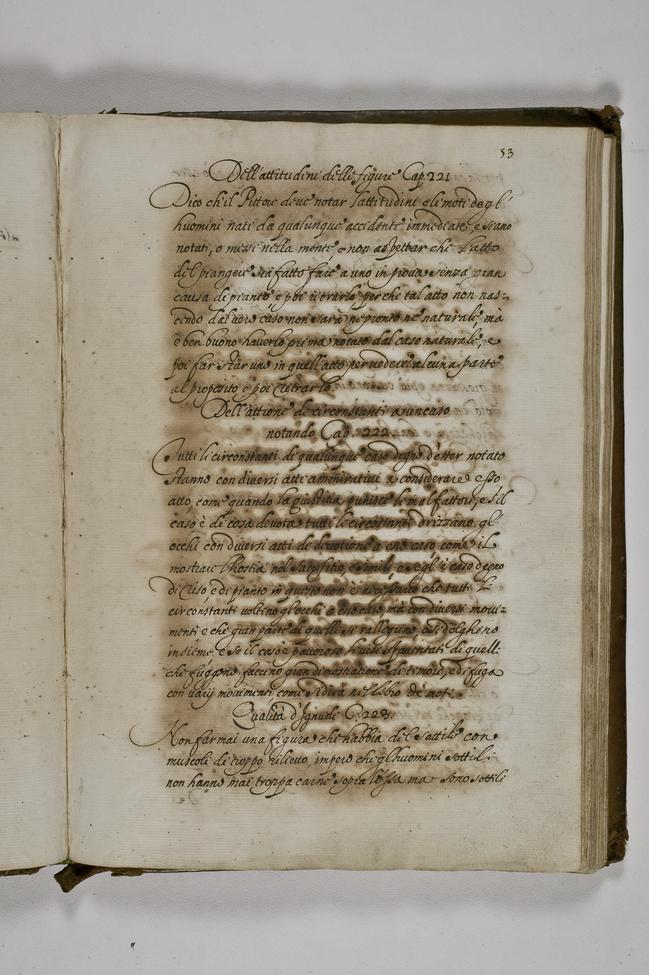 53
Dell'attitudini delle figure Cap. 221
Dico ch'il Pittore deve notar l'attitudini e li moti degl'
huomini nati da qualunque accidente immediate, e siano
notati, o messi nella mente e non aspettar che l'atto
del piangere sia fatto fare a uno in prova senza gran
causa di pianto e poi ritrarlo, perche tal atto non nas-
cendo dal vero caso non sarà ne pronto ne naturale, mà
è ben buono haverlo prima notato dal caso naturale, e
poi far star uno in quell'atto per vedere alcuna parte
al proposito e poi ritrarlo.
Dell'attione de circonstanti a un caso
notando Cap. 222.
Tutti li circonstanti di qualunque caso degno d'esser notato
stanno con diversi atti ammirativi a considerare esso
atto come quando la giustitia punisce li malfattori, e s'il
caso è di cosa devota tutti li circostanti drizzano gl'
occhi con diversi atti de devotione a esso caso come il
mostrare l'hostia nel sacrifitio, e simili, e s'egl'è caso degno
di riso, e di pianto in questo non è necessario che tutti li
circonstanti voltino gl'occhi a esso caso, mà con diversi movi-
menti e che gran parte di quelli si rallegrino, o si dolghino
insieme. E se il caso è pauroso li visi spaventati di quelli
che fuggono faccino gran dimostratione de timore, e di fuga
con varij movimenti come si dirà nel libro de moti.
Qualità d'Ignudi C. 223.
Non far mai una figura che habbia del sottile con
muscoli di troppo rilievo, impero che gl'huomini sottili
non hanno mai troppa carne sopra l'ossa ma sono sottili